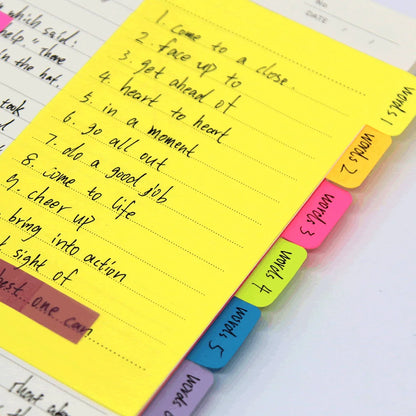 which said:
help. "There
in the hat.
took
and
NO
DATE / /
1. Come to a close.
2. face up to
3. get ahead of
4. heart to heart
5. in a moment
6. go all out
7. do a good job
8. come to life
9. cheer up
bring into action
sight of
best one can
words 1
words 2
words 3
words 4
words 5
words